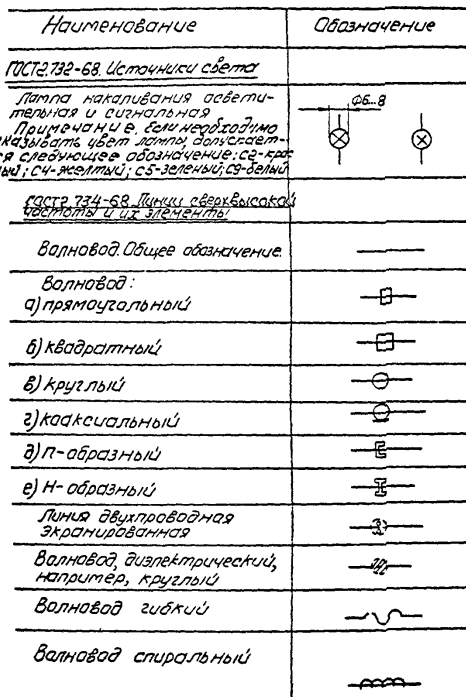 Наименование
Обозначение
ГОСТ2.732-68. Источники света
Лампа накаливания освети-
тельная и сигнальная
Примечание. Если необходимо
указывать цвет лампы, допускает-
ся следующее обозначение: С2-крас-
ный; С4-желтый; С5-зеленый; С9-белый
Ф6...8
ГОСТ2.734-68. Линии сверхвысокой
частоты и их элементы
Волновод. Общее обозначение.
Волновод:
а) прямоугольный
б) квадратный
в) круглый
г) коаксиальный
д) П-образный
е) Н-образный
Линия двухпроводная
экранированная
Волновод, диэлектрический,
например, круглый
Волновод гибкий
Волновод спиральный